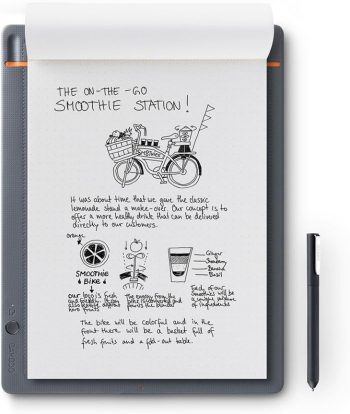 THE ON-THE-GO
SMOOTHIE STATION!
SMOOTHIE
It was about time that we gave the classic
lemonade stand a make-over. Our concept is to
offer a more healthy drink that can be delivered
directly to our customers.
orange
SMOOTHIE
BIKE
our logo is fresh
and
fruits
The energy from the
bike is
the blender
Ginger
Strawberry
Banana
Basil
Each of our
Smoothies will be
a unique
of ingredients
The bike will be colorful and in the
front there will be a basket full of
fresh fruits and a fold-out table.
wacom